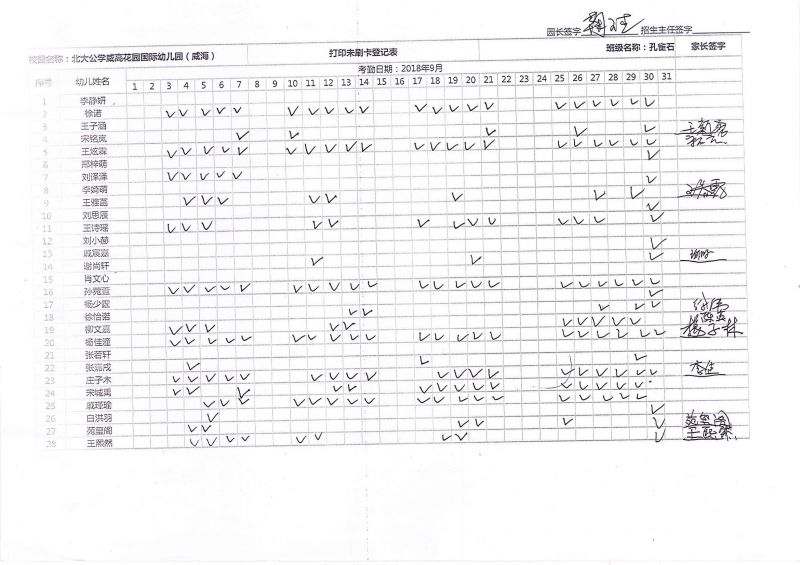 园长签字 招生主任签字
校园名称：北大公学威高花园国际幼儿园（威海） 打印未刷卡登记表 班级名称：孔雀石 家长签字
序号 幼儿姓名 考勤日期：2018年9月
1 2 3 4 5 6 7 8 9 10 11 12 13 14 15 16 17 18 19 20 21 22 23 24 25 26 27 28 29 30 31
1 李静妍
2 徐诺
3 王子涵
4 宋铭岚
5 王炫霖
6 邢梓萌
7 刘泽泽
8 李婍萌
9 王雅菡
10 刘思辰
11 王诗瑶
12 刘小赫
13 戚宸嘉
14 谢尚轩
15 肖文心
16 孙菀萱
17 杨少霆
18 徐怡诺
19 柳文嘉
20 杨佳潼
21 张若轩
22 张嘉成
23 庄子木
24 宋城禹
25 戚瑾瑜
26 白洪羽
27 苑玺阁 苑玺阁
28 王熙然